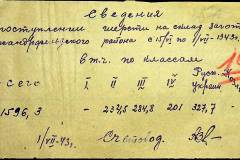 Сведения
о поступлении шерсти на склад Загот
района с 15/VI по 1/VII-1943 г.
в т.ч. по классам
Всего I II III IV Русск. украин
1596,3 - 237,5 284,8 201 327,7 -
1/VII-43 г. Счетовод